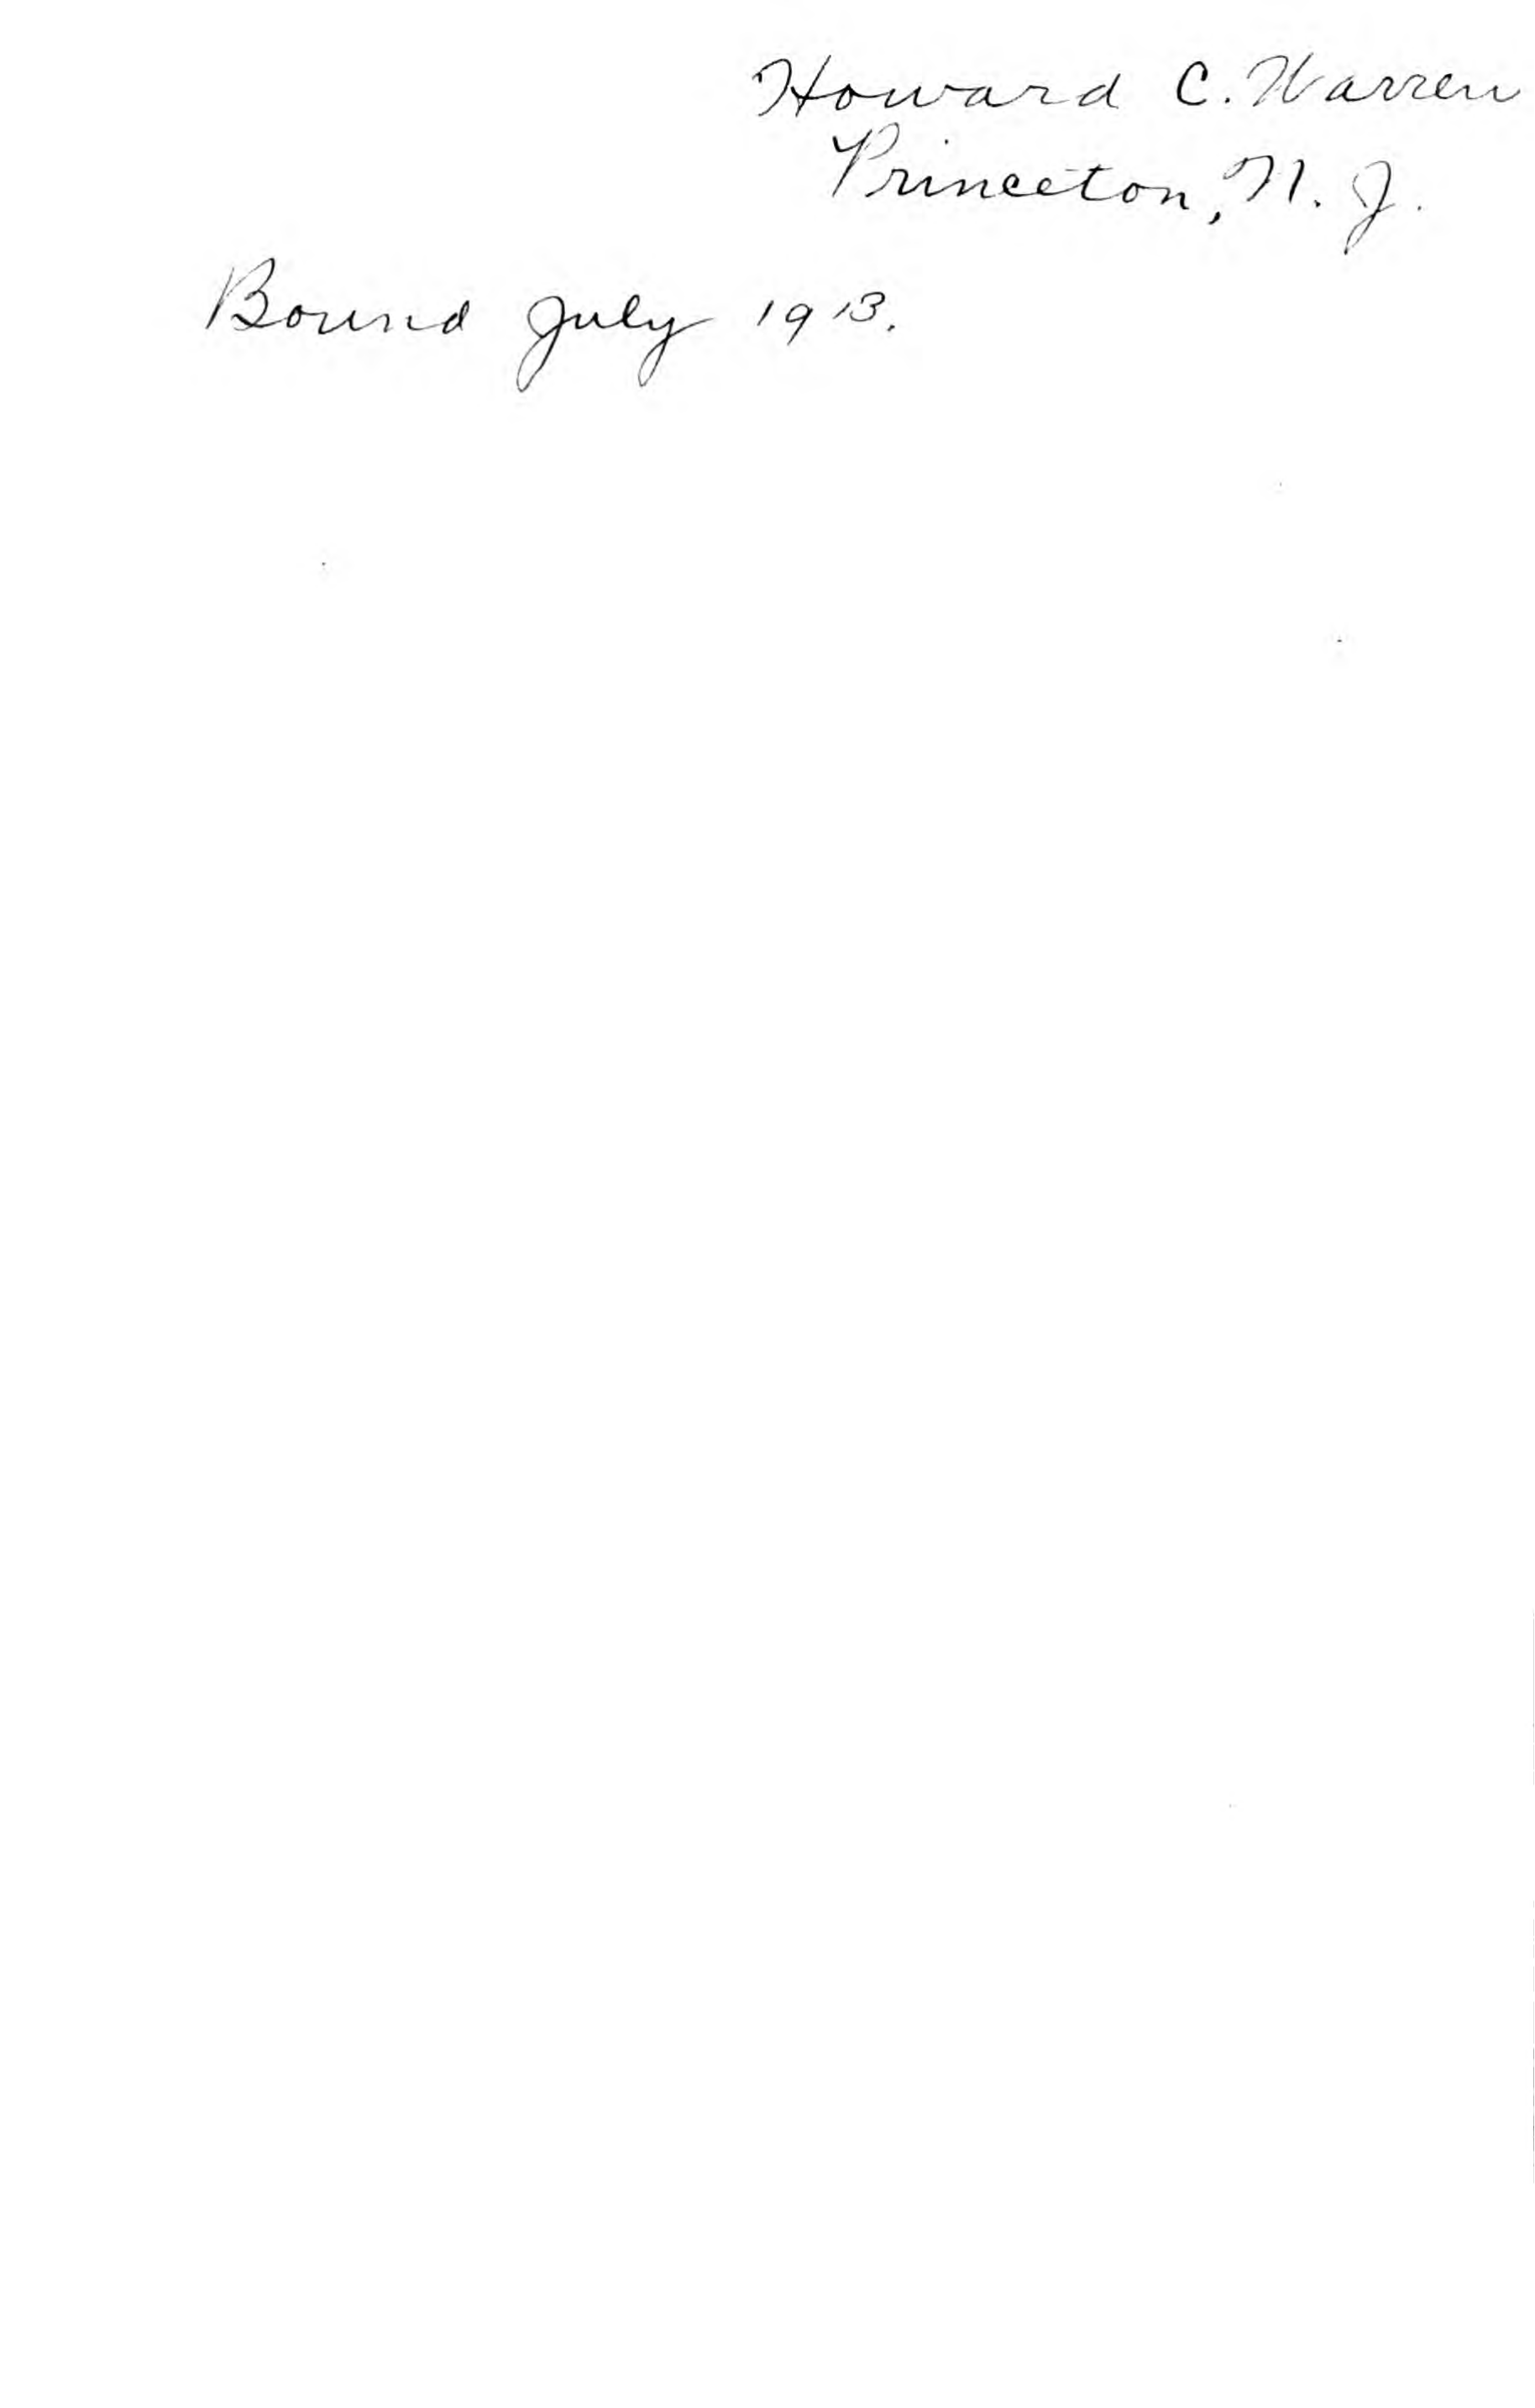 Howard C. Warren
Princeton, N. J.
Bound July 1913.